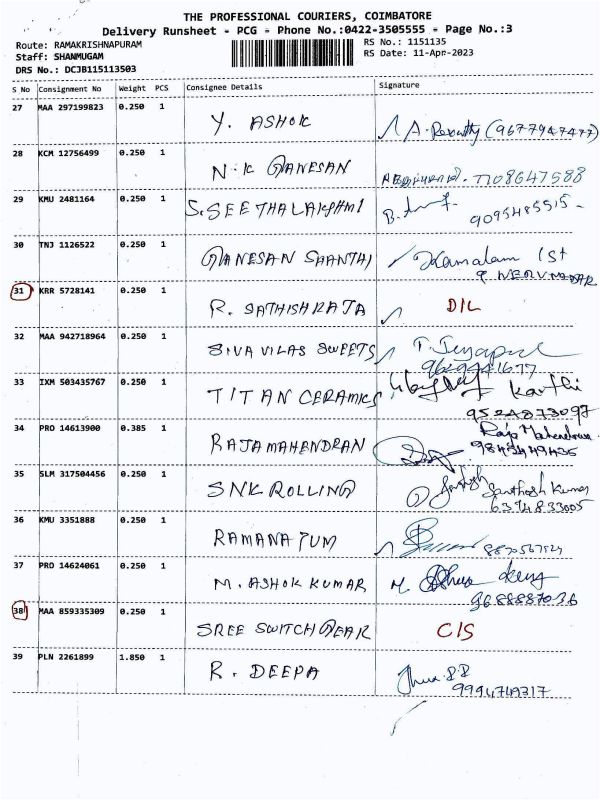 THE PROFESSIONAL COURIERS, COIMBATORE
Delivery Runsheet - PCG - Phone No.:0422-3505555 - Page No.:3
Route: RAMAKRISHNAPURAM RS No.: 1151135
Staff: SHANMUGAM RS Date: 11-Apr-2023
DRS No.: DCJB115113503
S No Consignment No Weight PCS Consignee Details Signature
27 MAA 297199823 0.250 1
Y. ASHOK (9677947477)
28 KCM 12756499 0.250 1
N.K GANESAN 7708647588
29 KMU 2481164 0.250 1
S. SEETHALAKSHMI 9095485515
30 TNJ 1126522 0.250 1
GANESAN SHANTHI Kamalam 1st
31 KRR 5728141 0.250 1
R. SATHISHRAJA D/L
32 MAA 942718964 0.250 1
SIVA VILAS SWEETS
9629441677
33 IXM 503435767 0.250 1
TITAN CERAMICS Karthi
9524873097
34 PRO 14613900 0.385 1
RAJAMAHENDRAN
9843449435
35 SLM 317504456 0.250 1
SNK ROLLING Santhosh Kumar
6374833005
36 KMU 3351888 0.250 1
37 PRO 14624061 0.250 1
M. ASHOK KUMAR
38 MAA 859335309 0.250 1
SREE SWITCHGEAR C/S
39 PLN 2261899 1.850 1
R. DEEPA
9994749317